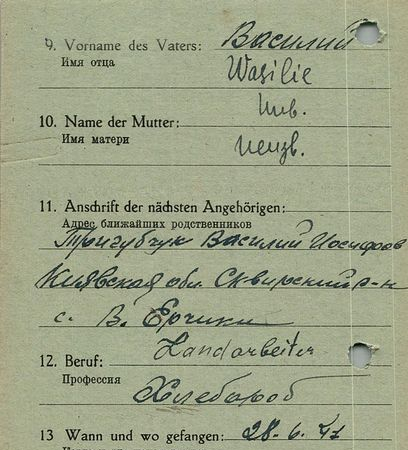 9. Vorname des Vaters: Василий
Имя отца
Wasilie
10. Name der Mutter: unb.
Имя матери
неизв.
11. Anschrift der nächsten Angehörigen:
Адрес ближайших родственников
Тригубчук Василий Иосифов
Киявская обл. Сквирский р-н
с. В. Ерчики
12. Beruf: Landarbeiter
Профессия
Хлебороб
13 Wann und wo gefangen: 28.6.41